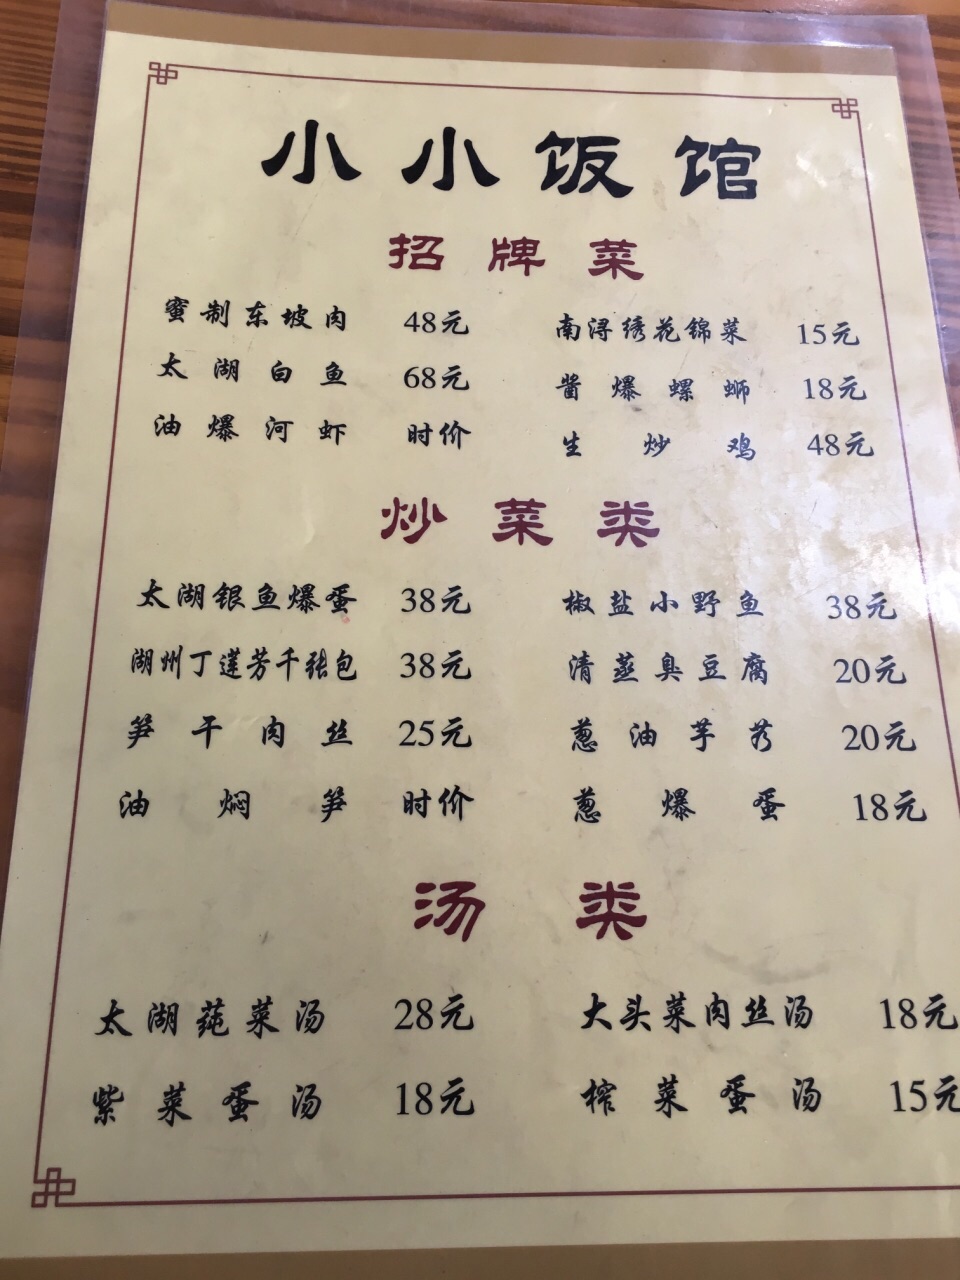 小小饭馆
招牌菜
蜜制东坡肉 48元 南浔绣花锦菜 15元
太湖白鱼 68元 酱爆螺蛳 18元
油爆河虾 时价 生炒鸡 48元
炒菜类
太湖银鱼爆蛋 38元 椒盐小野鱼 38元
湖州丁莲芳千张包 38元 清蒸臭豆腐 20元
笋干肉丝 25元 葱油芋艿 20元
油焖笋 时价 葱爆蛋 18元
汤类
太湖莼菜汤 28元 大头菜肉丝汤 18元
紫菜蛋汤 18元 榨菜蛋汤 15元